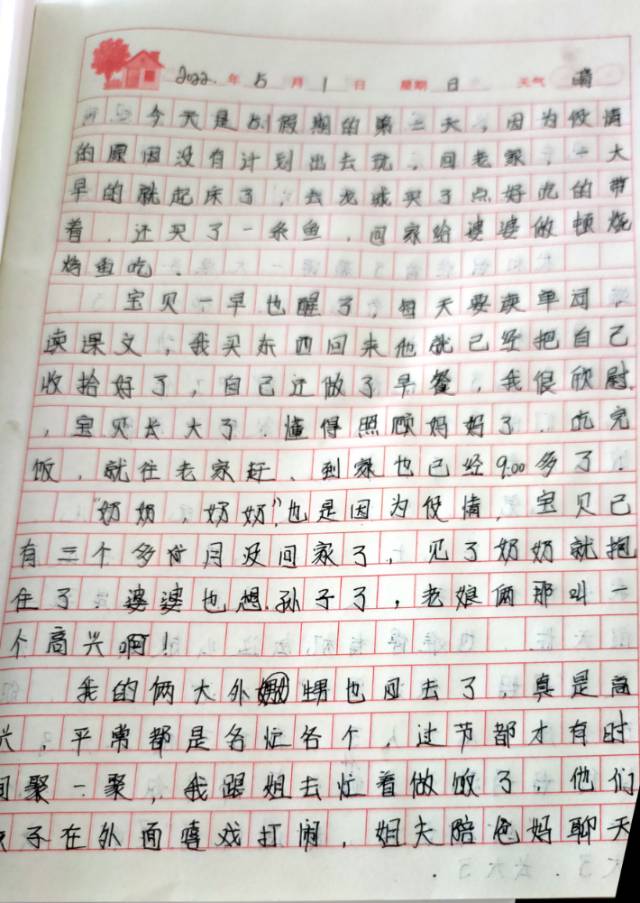 2022年5月1日 星期日 天气 晴
今天是51假期的第二天，因为疫情
的原因没有计划出去玩，回老家，一大
早的就起床了，去龙城买了点好吃的带
着，还买了一条鱼，回家给婆婆做顿烧
烤鱼吃．
宝贝一早也醒了，每天要读单词，
读课文，我买东西回来他就已经把自己
收拾好了，自己还做了早餐，我很欣慰
，宝贝长大了．懂得照顾妈妈了．吃完
饭，就往老家赶、到家也已经9.00多了．
“奶奶，奶奶”，也是因为疫情，宝贝已
有三个多月没回家了，见了奶奶就抱
住了．婆婆也想孙子了，老娘俩那叫一
个高兴啊！
我的俩大外甥也回去了，真是高
兴，平常都是各忙各个，过节都才有时
间聚一聚，我跟姐去忙着做饭了，他们
孩子在外面嘻戏打闹，姐夫陪爸妈聊天